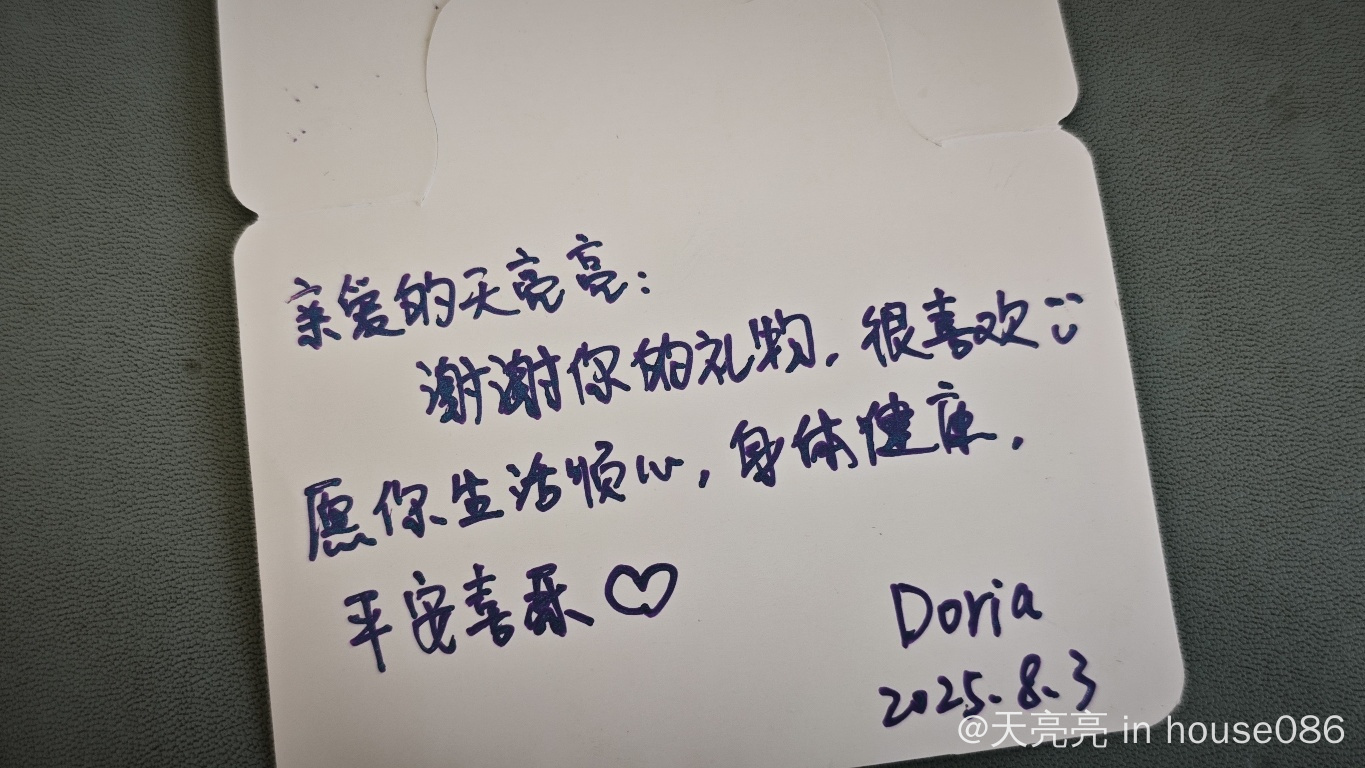 亲爱的天亮亮：
谢谢你的礼物，很喜欢
愿你生活顺心，身体健康，
平安喜乐♡
Doria
2025.8.3
@天亮亮 in house086